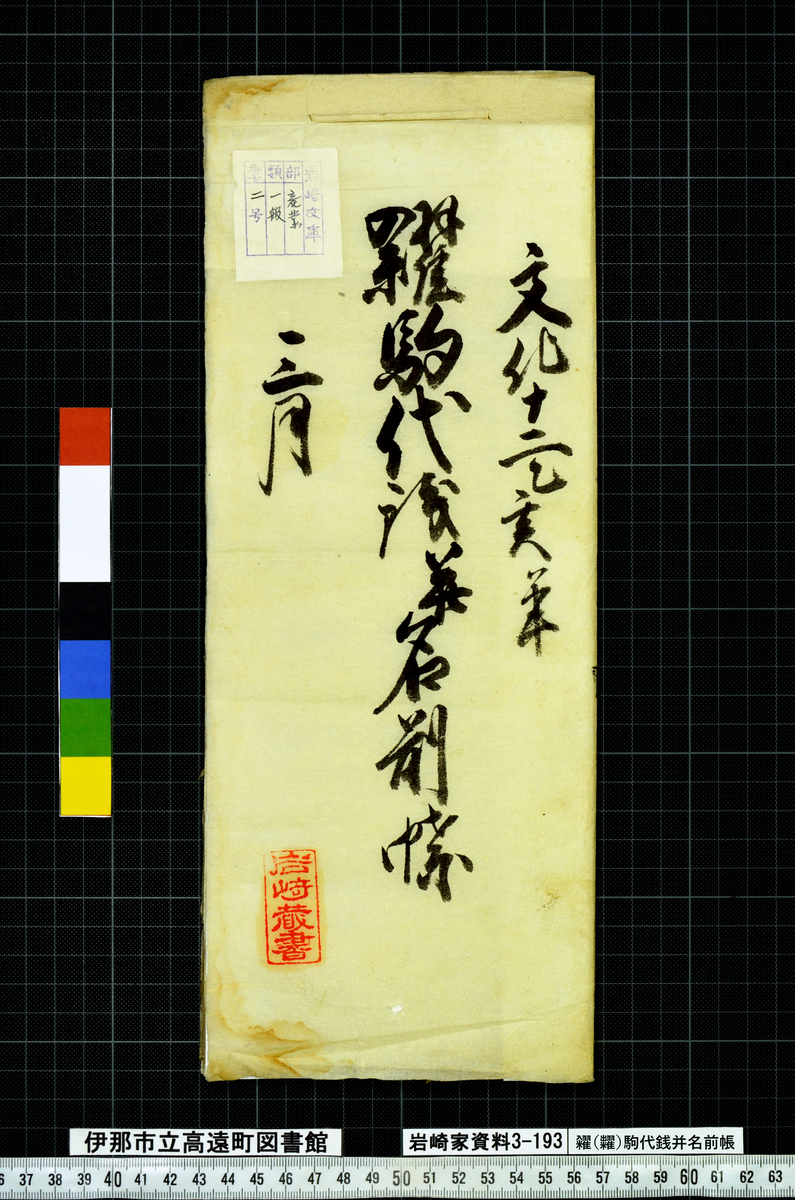 文化十二乙亥年
糶駒代銭并名前帳
三月
岩崎文庫
部 産業
類 一般
番号 二号
岩崎蔵書
伊那市立高遠町図書館
岩崎家資料3-193
糴(糶)駒代銭并名前帳
37 38 39 40 41 42 43 44 45 46 47 48 49 50 51 52 53 54 55 56 57 58 59 60 61 62 63